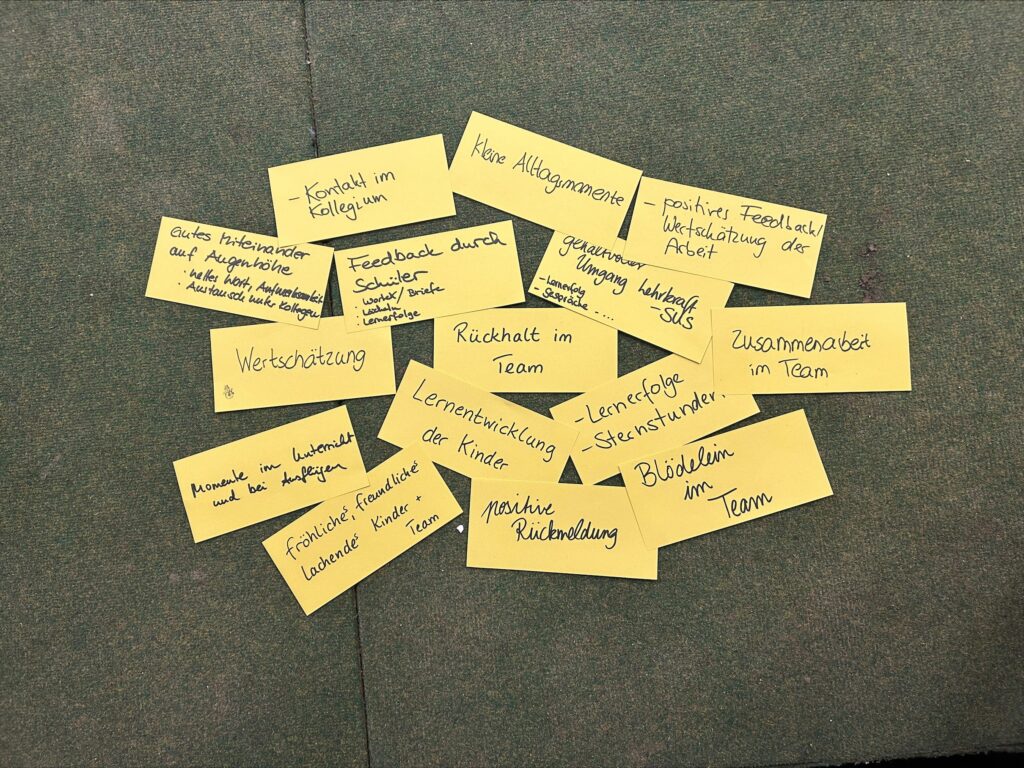 - Kontakt im
Kollegium
kleine Alltagsmomente
- positives Feedback/
Wertschätzung der
Arbeit
gutes Miteinander
auf Augenhöhe
· nettes Wort, Aufmerksamkeit
· Austausch unter Kollegen
Feedback durch
Schüler
· Worte / Briefe
· Lächeln
· Lernerfolge
Umgang Lehrkraft
- SuS
- Lernerfolg
- Gespräche - ...
Wertschätzung
Rückhalt im
Team
Zusammenarbeit
im Team
Lernentwicklung
der Kinder
- Lernerfolge
- Sternstunden
Momente im Unterricht
und bei Ausflügen
fröhliches, freundliches
Lachendes Kinder +
Team
positive
Rückmeldung
Blödelein
im
Team